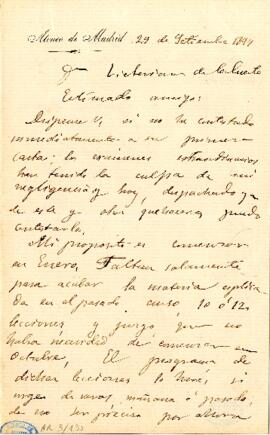 Ateneo de Madrid 29 de Setiembre 1897
Dn Victoriano de la Cuesta
Estimado amigo:
Dispense V. si no he contestado
inmediatamente a su primera
carta: los exámenes extraordinarios
han tenido la culpa de mi
negligencia y hoy, despachado ya
de este y otros quehaceres puedo
contestarla.
Mi propósito es comenzar
en Enero. Faltan solamente
para acabar la materia explica
da en el pasado curso 10 ó 12
lecciones y juzgo que no
había necesidad de comenzar en
Octubre. El programa de
dichas lecciones lo haré, si
urgen de veras, mañana ó pasado,
de no ser preciso por ahora
AR 3/133